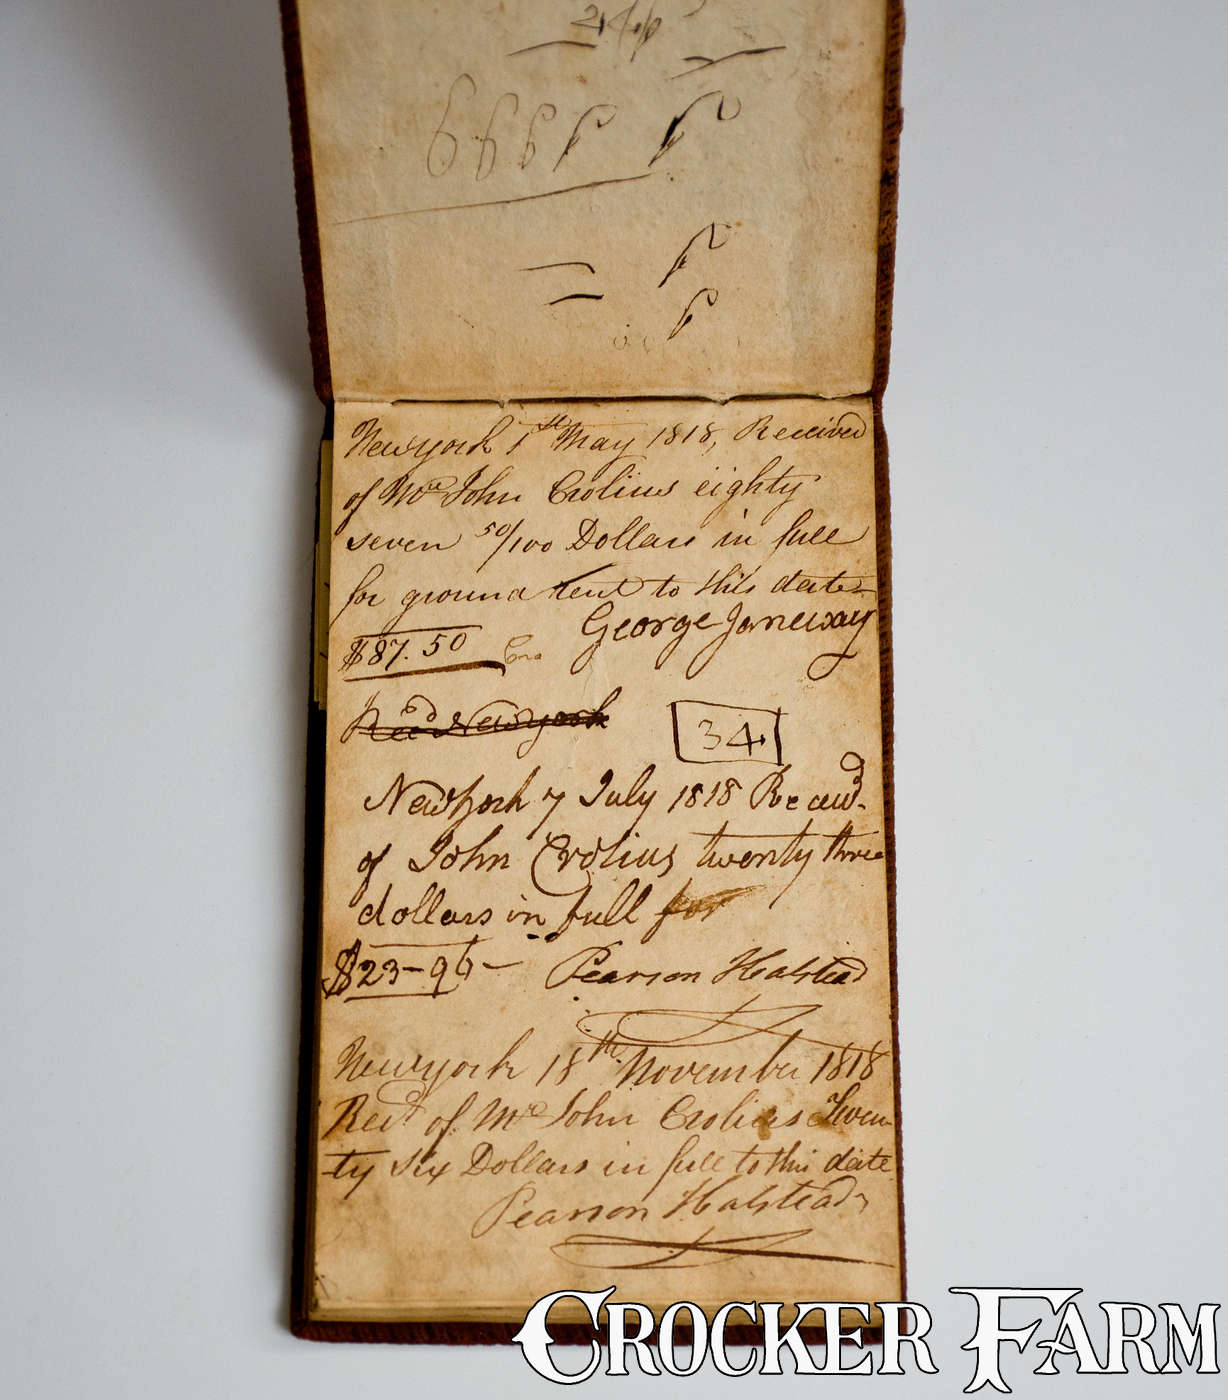 Newyork 1st May 1818, Received
of Mr John Crolius eighty
seven 50/100 Dollars in full
for ground rent to this date
George Janeway
$87.50
Recd Newyork
34
New York 7 July 1818 Recevd
of John Crolius twenty three
dollars in full for
$23-96- Pearson Halstead
Newyork 18th November 1818
Recd of Mr John Crolius Twen-
ty six Dollars in full to this date
Pearson Halstead
CROCKER FARM